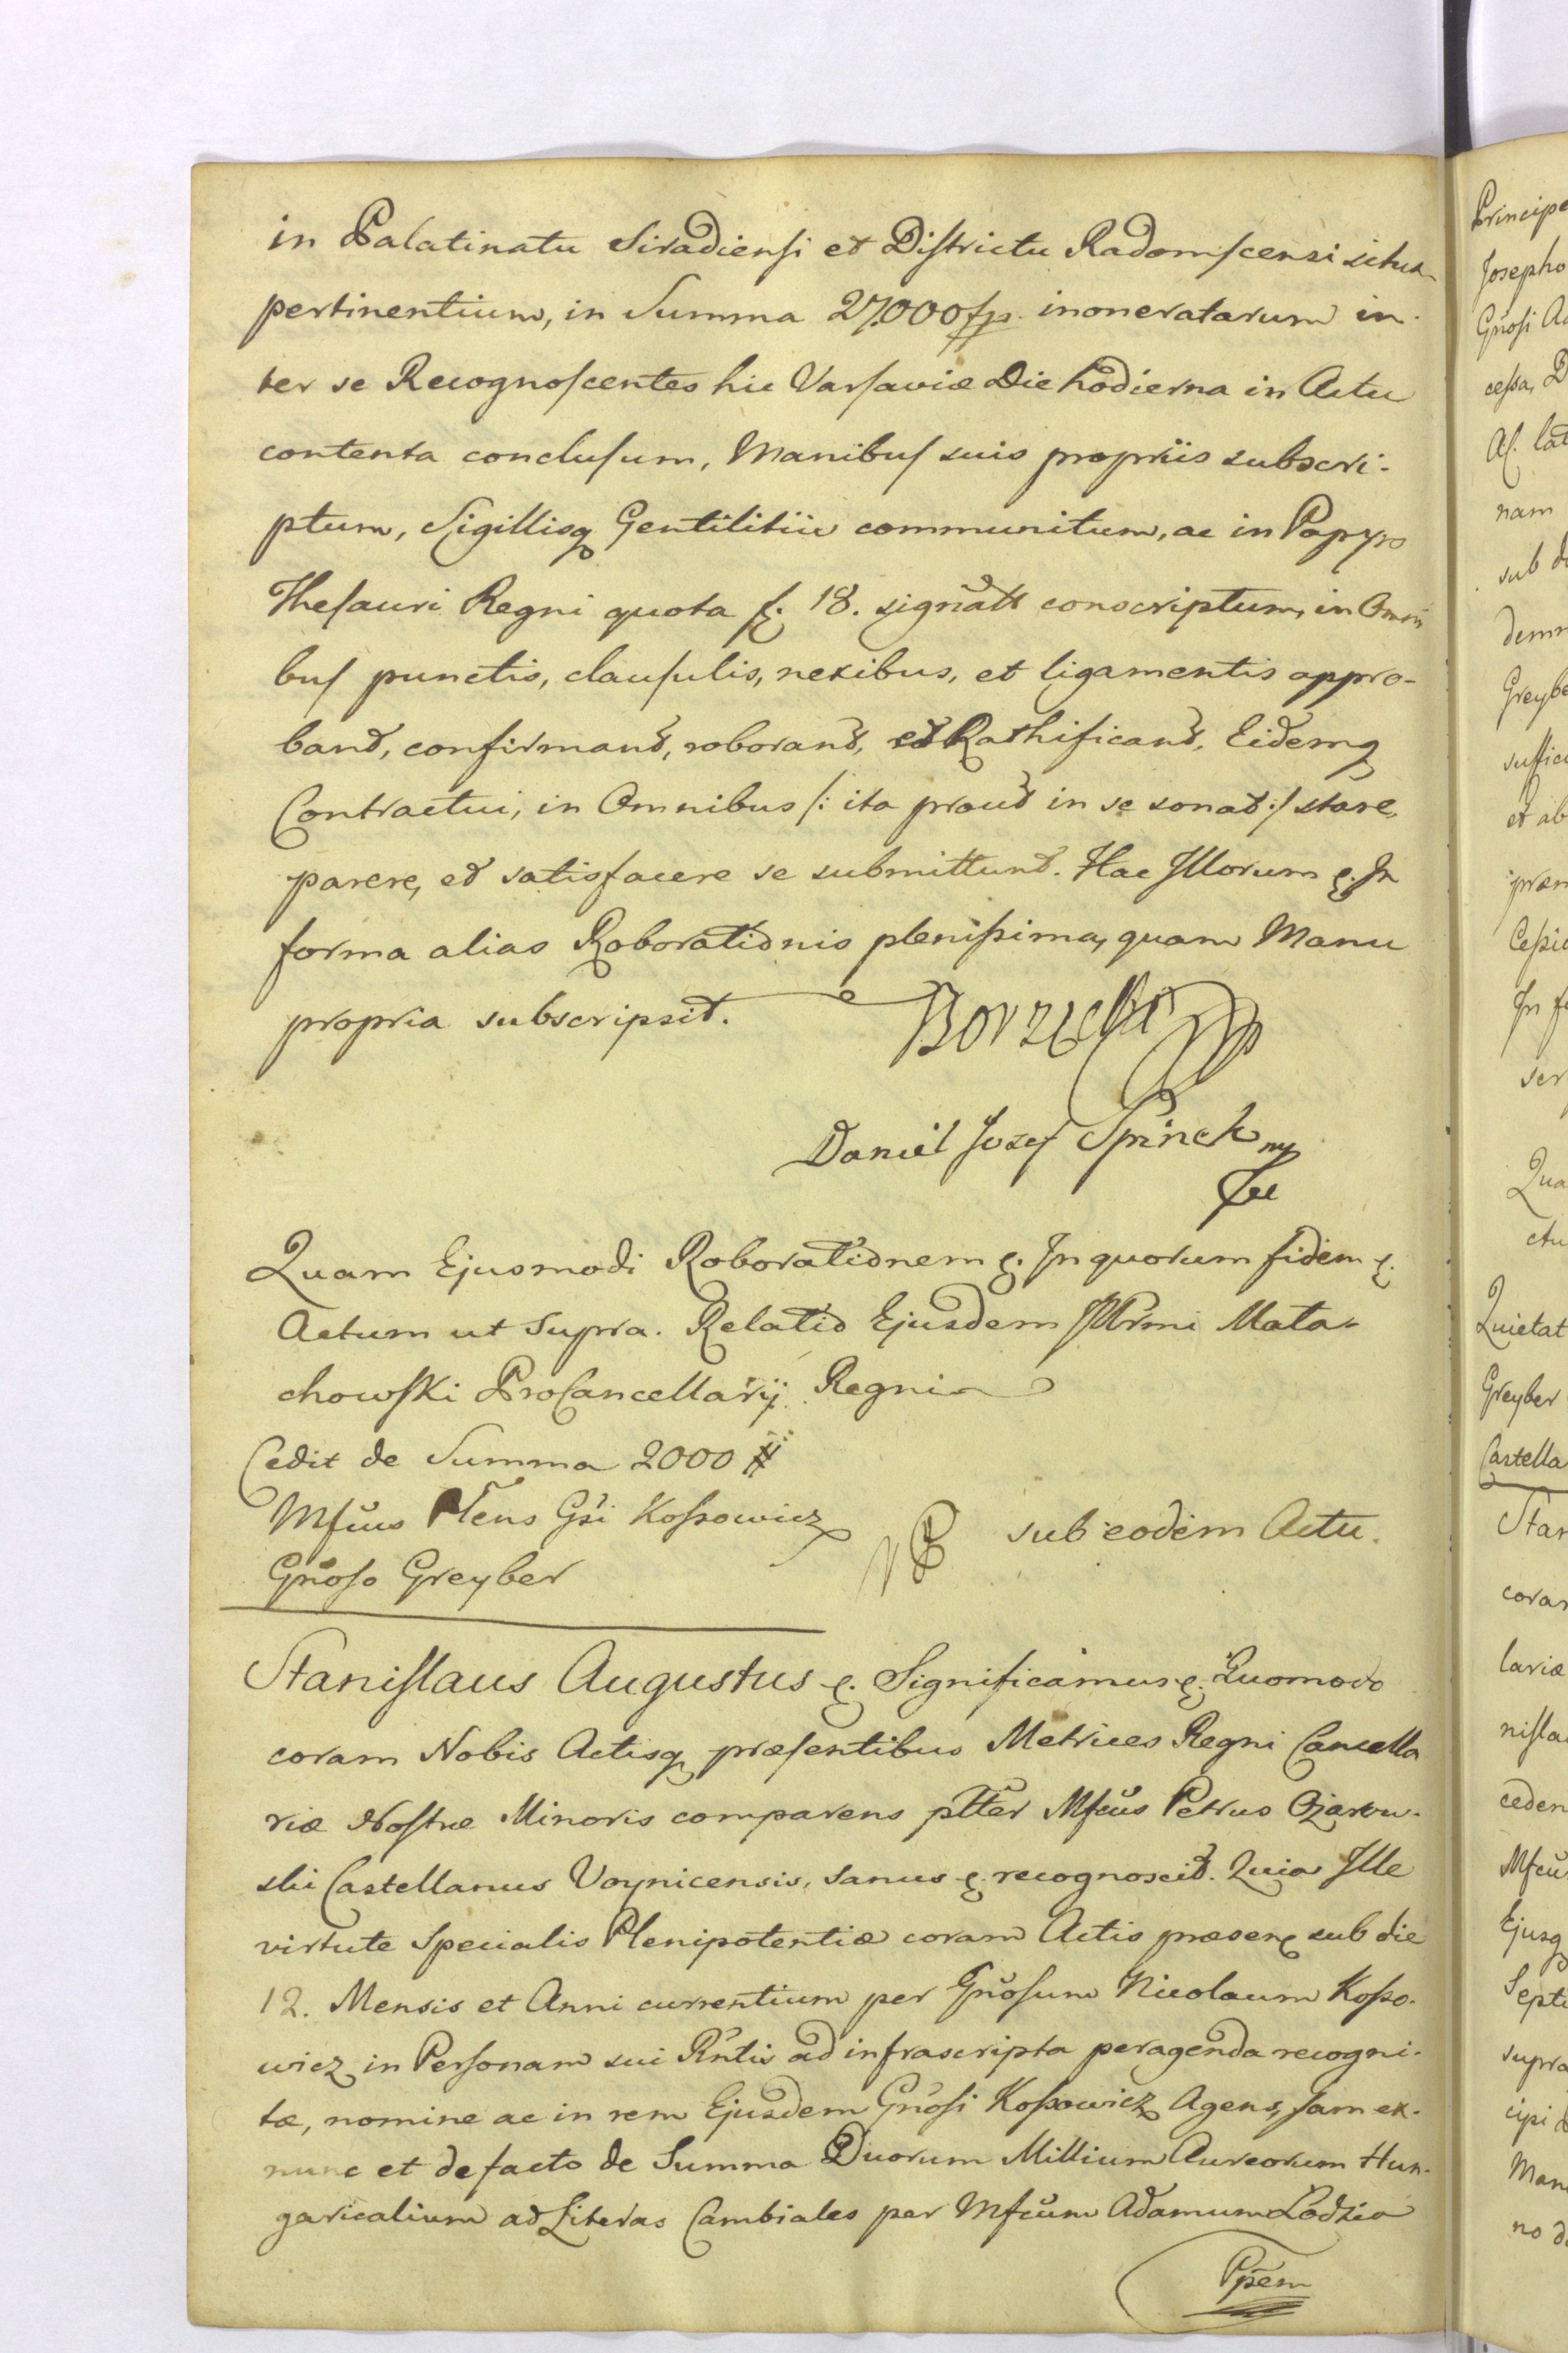 in Palatinatu Siradiensi et Districtu Radomscensi situa
pertinentium, in Summa 27.000 fp. inoneratarum in-
ter se Recognoscentes hic Varsaviæ Die hodierna in Actu
contenta conclusum, Manibus suis propriis subscri-
ptum, Sigillisq Gentilitiis communitum, ac in Papyro
Thesauri Regni quota f. 18. signātt conscriptum, in Omni
bus punctis, clausulis, nexibus, et ligamentis appro-
band, confirmand, roborand, et Rathificand, Eidemq
Contractui, in Omnibus /: ita prout in se sonat :/ stare,
parere, et satisfacere se submittunt. Hac Illorum e. In
forma alias Roborationis plenissima, quam Manu
propria subscripsit.
Borzęcki
Daniel Jozef Spinek mp
Quam Ejusmodi Roborationem e. In quorum fidem e.
Actum ut Supra. Relatio Ejusdem Illrmi Mała-
chowski ProCancellarij Regni
Cedit de Summa 2000 #
Mfcus Plens Gsi Kossowicz
Gnoso Greyber
sub eodem Actu.
Stanislaus Augustus e. Significamus e. Quomodo
coram Nobis Actisq præsentibus Metrices Regni Cancella
riæ Nostræ Minoris comparens pltter Mfcus Petrus Ozarow-
ski Castellanus Voynicensis, Sanus e. recognoscit. Quia Ille
virtute Specialis Plenipotentiæ coram Actis præsen sub die
12. Mensis et Anni currentium per Gnosum Nicolaum Kosso-
wicz in Personam sui Rntis ad infrascripta peragenda recogni-
tæ, nomine ac in rem Ejusdem Gnosi Kossowicz Agens, jam ex-
nunc et de facto de Summa Duorum Millium Aureorum Hun-
garicalium ad Literas Cambiales per Mfcum Adamum Lodzia
Ppem
Principe
Josepho
Gnosi
cessa, D
nam
sub
Greybe
suffici
et ab
Quietat
Greyber
Castella
Stan
coram
lariæ
nisla
ceden
Mfcu
Ejusq
Septe
supra
cipi
Man
no